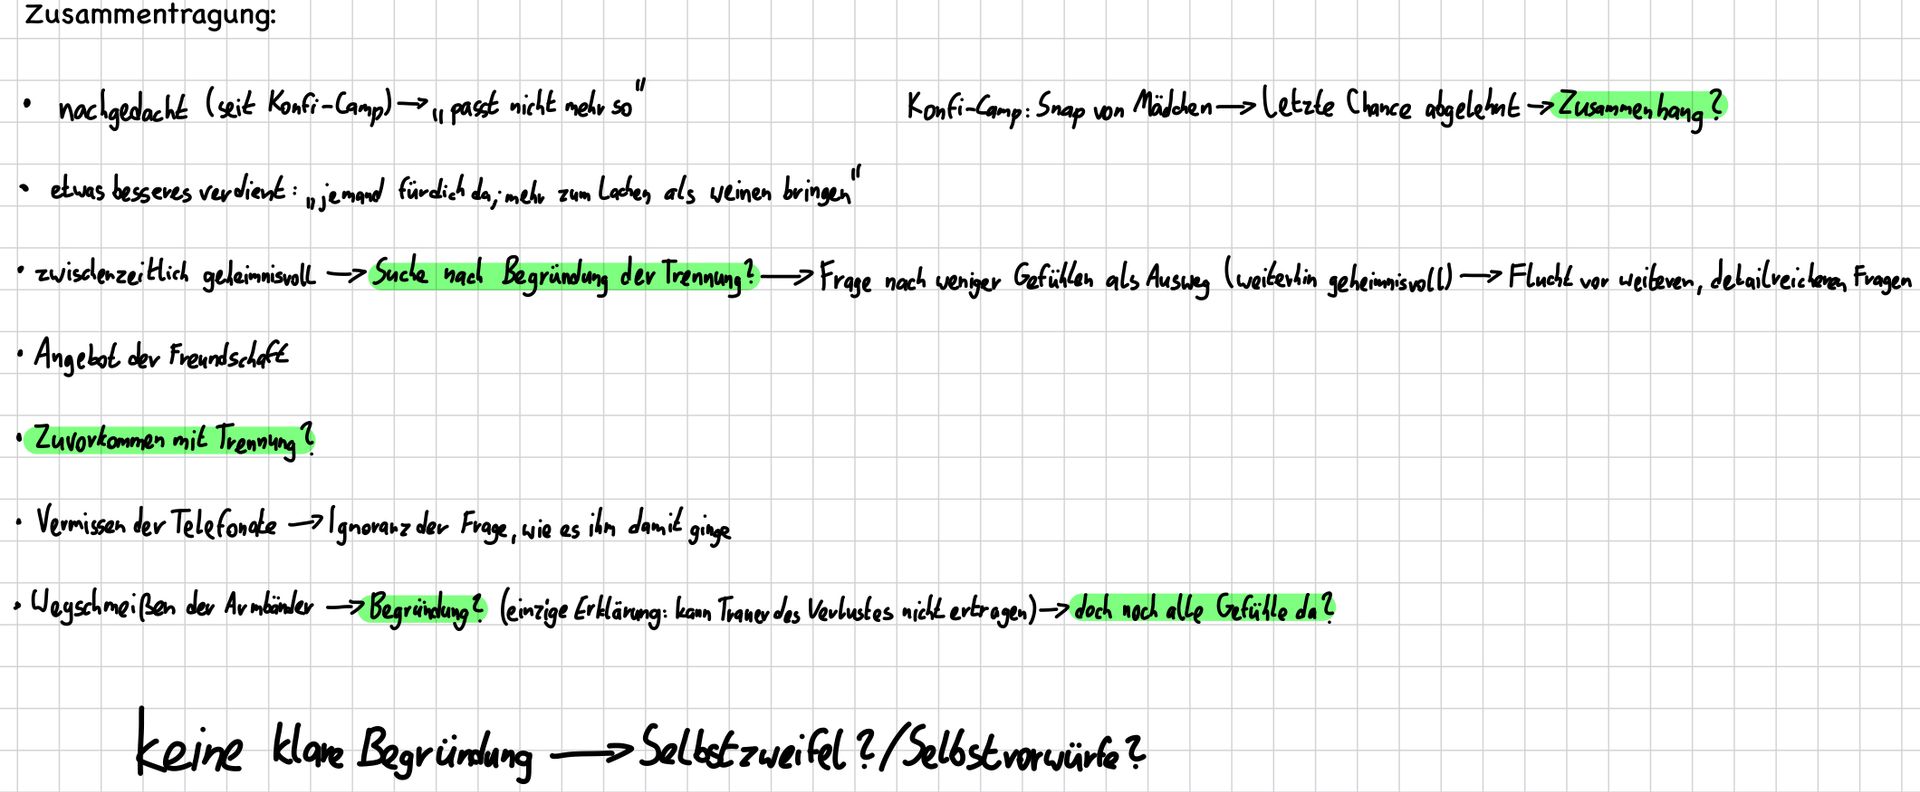 Zusammentragung:
• nachgedacht (seit Konfi-Camp) → „passt nicht mehr so"
Konfi-Camp: Snap von Mädchen → Letzte Chance abgelehnt → Zusammenhang?
• etwas besseres verdient: „jemand für dich da; mehr zum Lachen als weinen bringen"
• zwischenzeitlich geheimnisvoll → Suche nach Begründung der Trennung? → Frage nach weniger Gefühlen als Ausweg (weiterhin geheimnisvoll) → Flucht vor weiteren, detailreicheren Fragen
• Angebot der Freundschaft
• Zuvorkommen mit Trennung?
• Vermissen der Telefonate → Ignoranz der Frage, wie es ihm damit ginge
• Wegschmeißen der Armbänder → Begründung? (einzige Erklärung: kann Trauer des Verlustes nicht ertragen) → doch noch alle Gefühle da?
keine klare Begründung → Selbstzweifel?/Selbstvorwürfe?